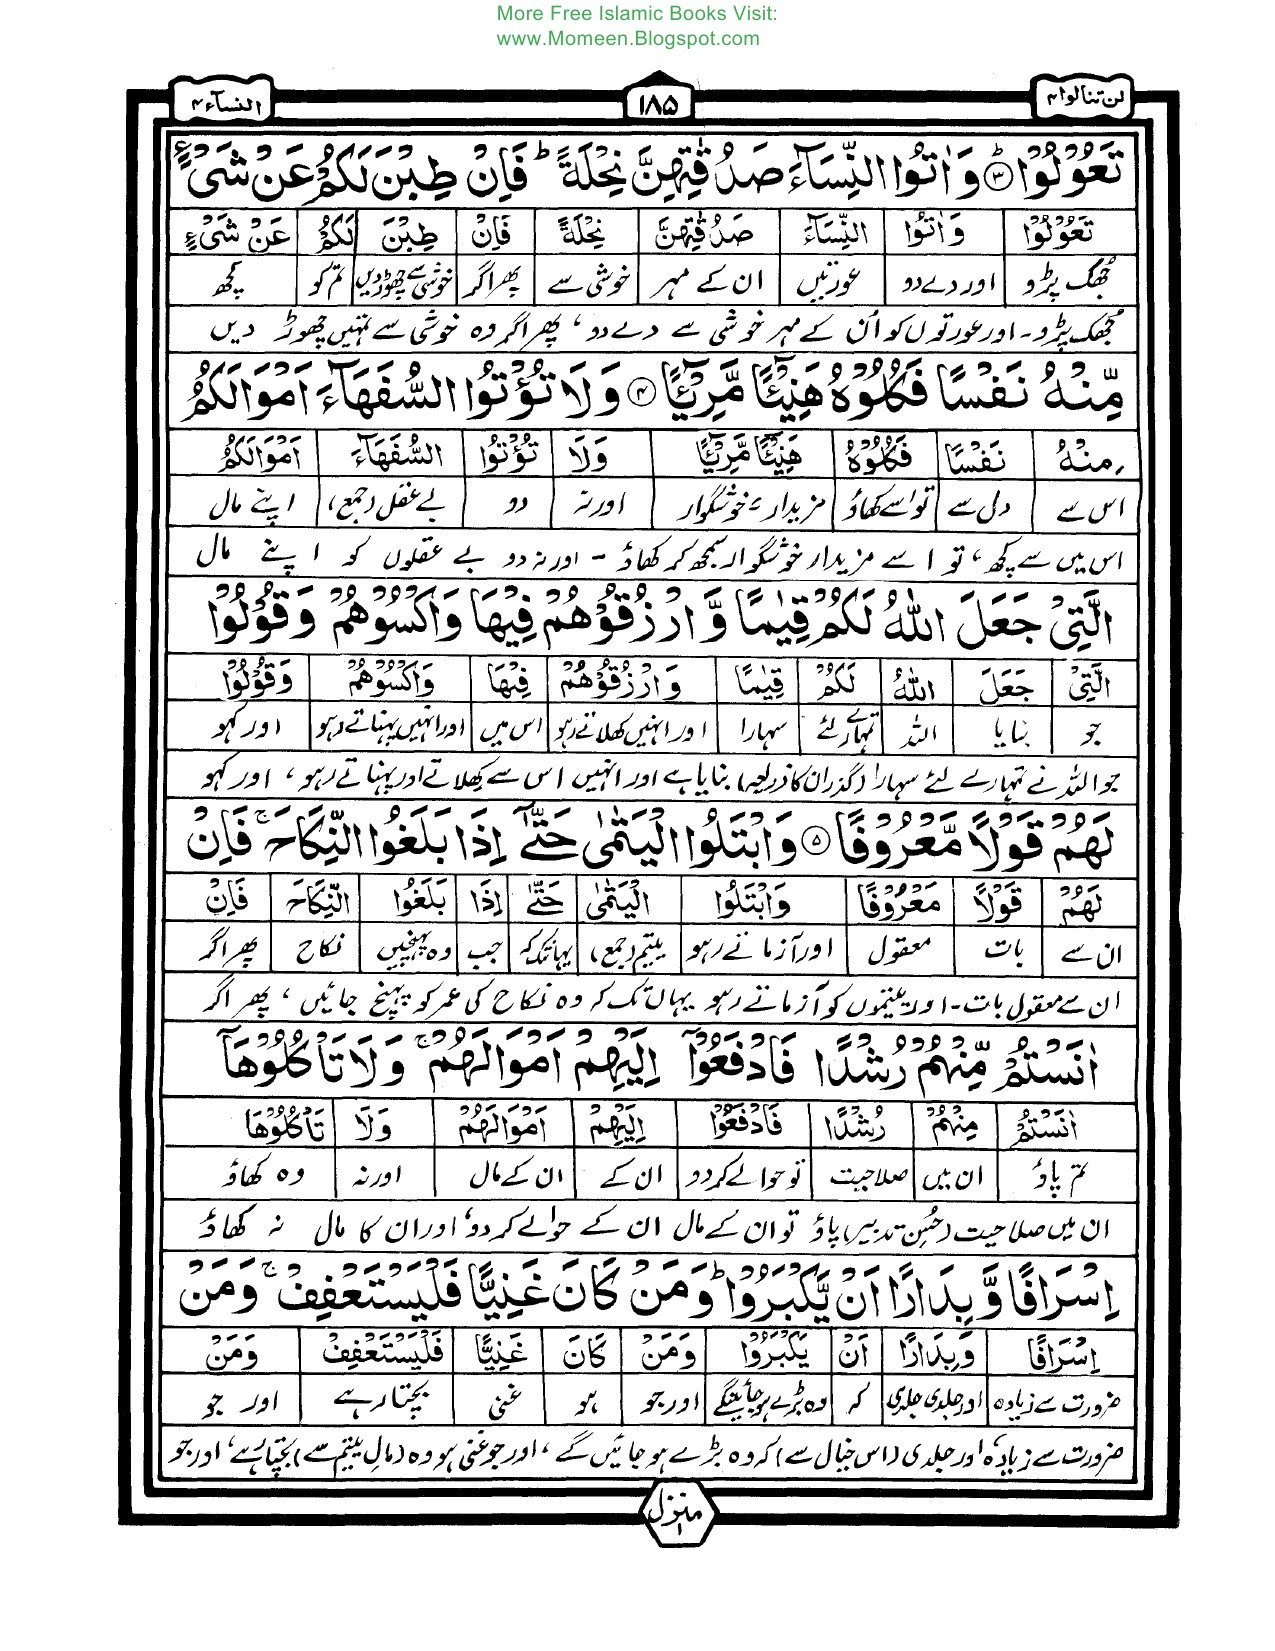 More Free Islamic Books Visit:
www.Momeen.Blogspot.com
لن تنالوا ۴ ۱۸۵ النسآء ۴
تَعُوْلُوْا ۳ؕ وَاٰتُوا النِّسَآءَ صَدُقٰتِهِنَّ نِحْلَةً ؕ فَاِنْ طِبْنَ لَكُمْ عَنْ شَیْءٍ
تَعُوْلُوْا وَاٰتُوا النِّسَآءَ صَدُقٰتِهِنَّ نِحْلَةً فَاِنْ طِبْنَ لَكُمْ عَنْ شَیْءٍ
جھک پڑو اور دے دو عورتیں ان کے مہر خوشی سے پھر اگر خوشی سے چھوڑ دیں تم کو کچھ
جھک پڑو۔ اور عورتوں کو اُن کے مہر خوشی سے دے دو، پھر اگر وہ خوشی سے تمہیں چھوڑ دیں
مِّنْهُ نَفْسًا فَكُلُوْهُ هَنِیْٓــًٔا مَّرِیْٓــًٔا ۴ وَلَا تُؤْتُوا السُّفَهَآءَ اَمْوَالَكُمُ
مِنْهُ نَفْسًا فَكُلُوْهُ هَنِیْٓــًٔا مَّرِیْٓــًٔا وَلَا تُؤْتُوا السُّفَهَآءَ اَمْوَالَكُمُ
اس سے دل سے تو اسے کھاؤ مزیدار، خوشگوار اور نہ دو بے عقل (جمع) اپنے مال
اس میں سے کچھ، تو اسے مزیدار خوشگوار سمجھ کر کھاؤ ۔ اور نہ دو بے عقلوں کو اپنے مال
الَّتِیْ جَعَلَ اللّٰهُ لَكُمْ قِیٰمًا وَّارْزُقُوْهُمْ فِیْهَا وَاكْسُوْهُمْ وَقُوْلُوْا
الَّتِیْ جَعَلَ اللّٰهُ لَكُمْ قِیٰمًا وَارْزُقُوْهُمْ فِیْهَا وَاكْسُوْهُمْ وَقُوْلُوْا
جو بنایا اللہ تمہارے لئے سہارا اور انہیں کھلاتے رہو اس میں اور انہیں پہناتے رہو اور کہو
جو اللہ نے تمہارے لئے سہارا (گذران کا ذریعہ) بنایا ہے اور انہیں اس سے کھلاتے اور پہناتے رہو، اور کہو
لَهُمْ قَوْلًا مَّعْرُوْفًا ۵ وَابْتَلُوا الْیَتٰمٰی حَتّٰۤی اِذَا بَلَغُوا النِّكَاحَ ۚ فَاِنْ
لَهُمْ قَوْلًا مَعْرُوْفًا وَابْتَلُوا الْیَتٰمٰی حَتّٰی اِذَا بَلَغُوا النِّكَاحَ فَاِنْ
ان سے بات معقول اور آزماتے رہو یتیم (جمع) یہانتک کہ جب وہ پہنچیں نکاح پھر اگر
ان سے معقول بات۔ اور یتیموں کو آزماتے رہو یہاں تک کہ وہ نکاح کی عمر کو پہنچ جائیں، پھر اگر
اٰنَسْتُمْ مِّنْهُمْ رُشْدًا فَادْفَعُوْۤا اِلَیْهِمْ اَمْوَالَهُمْ ۚ وَلَا تَاْكُلُوْهَاۤ
اٰنَسْتُمْ مِنْهُمْ رُشْدًا فَادْفَعُوْۤا اِلَیْهِمْ اَمْوَالَهُمْ وَلَا تَاْكُلُوْهَا
تم پاؤ ان میں صلاحیت تو حوالے کر دو ان کے ان کے مال اور نہ وہ کھاؤ
ان میں صلاحیت (حُسنِ تدبیر) پاؤ تو ان کے مال ان کے حوالے کر دو، اور ان کا مال نہ کھاؤ
اِسْرَافًا وَّبِدَارًا اَنْ یَّكْبَرُوْا ؕ وَمَنْ كَانَ غَنِیًّا فَلْیَسْتَعْفِفْ ۚ وَمَنْ
اِسْرَافًا وَبِدَارًا اَنْ یَكْبَرُوْا وَمَنْ كَانَ غَنِیًّا فَلْیَسْتَعْفِفْ وَمَنْ
ضرورت سے زیادہ اور جلدی جلدی کہ وہ بڑے ہو جائینگے اور جو ہو غنی بچتا رہے اور جو
ضرورت سے زیادہ، اور جلدی (اس خیال سے) کہ وہ بڑے ہو جائیں گے، اور جو غنی ہو وہ (مالِ یتیم سے) بچتا رہے، اور جو
منزل ۱